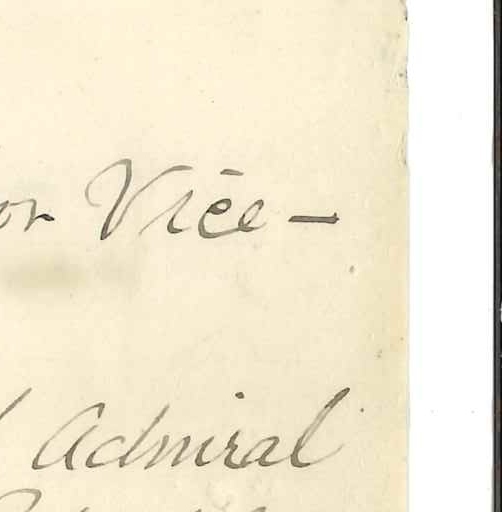 or Vice-
Admiral